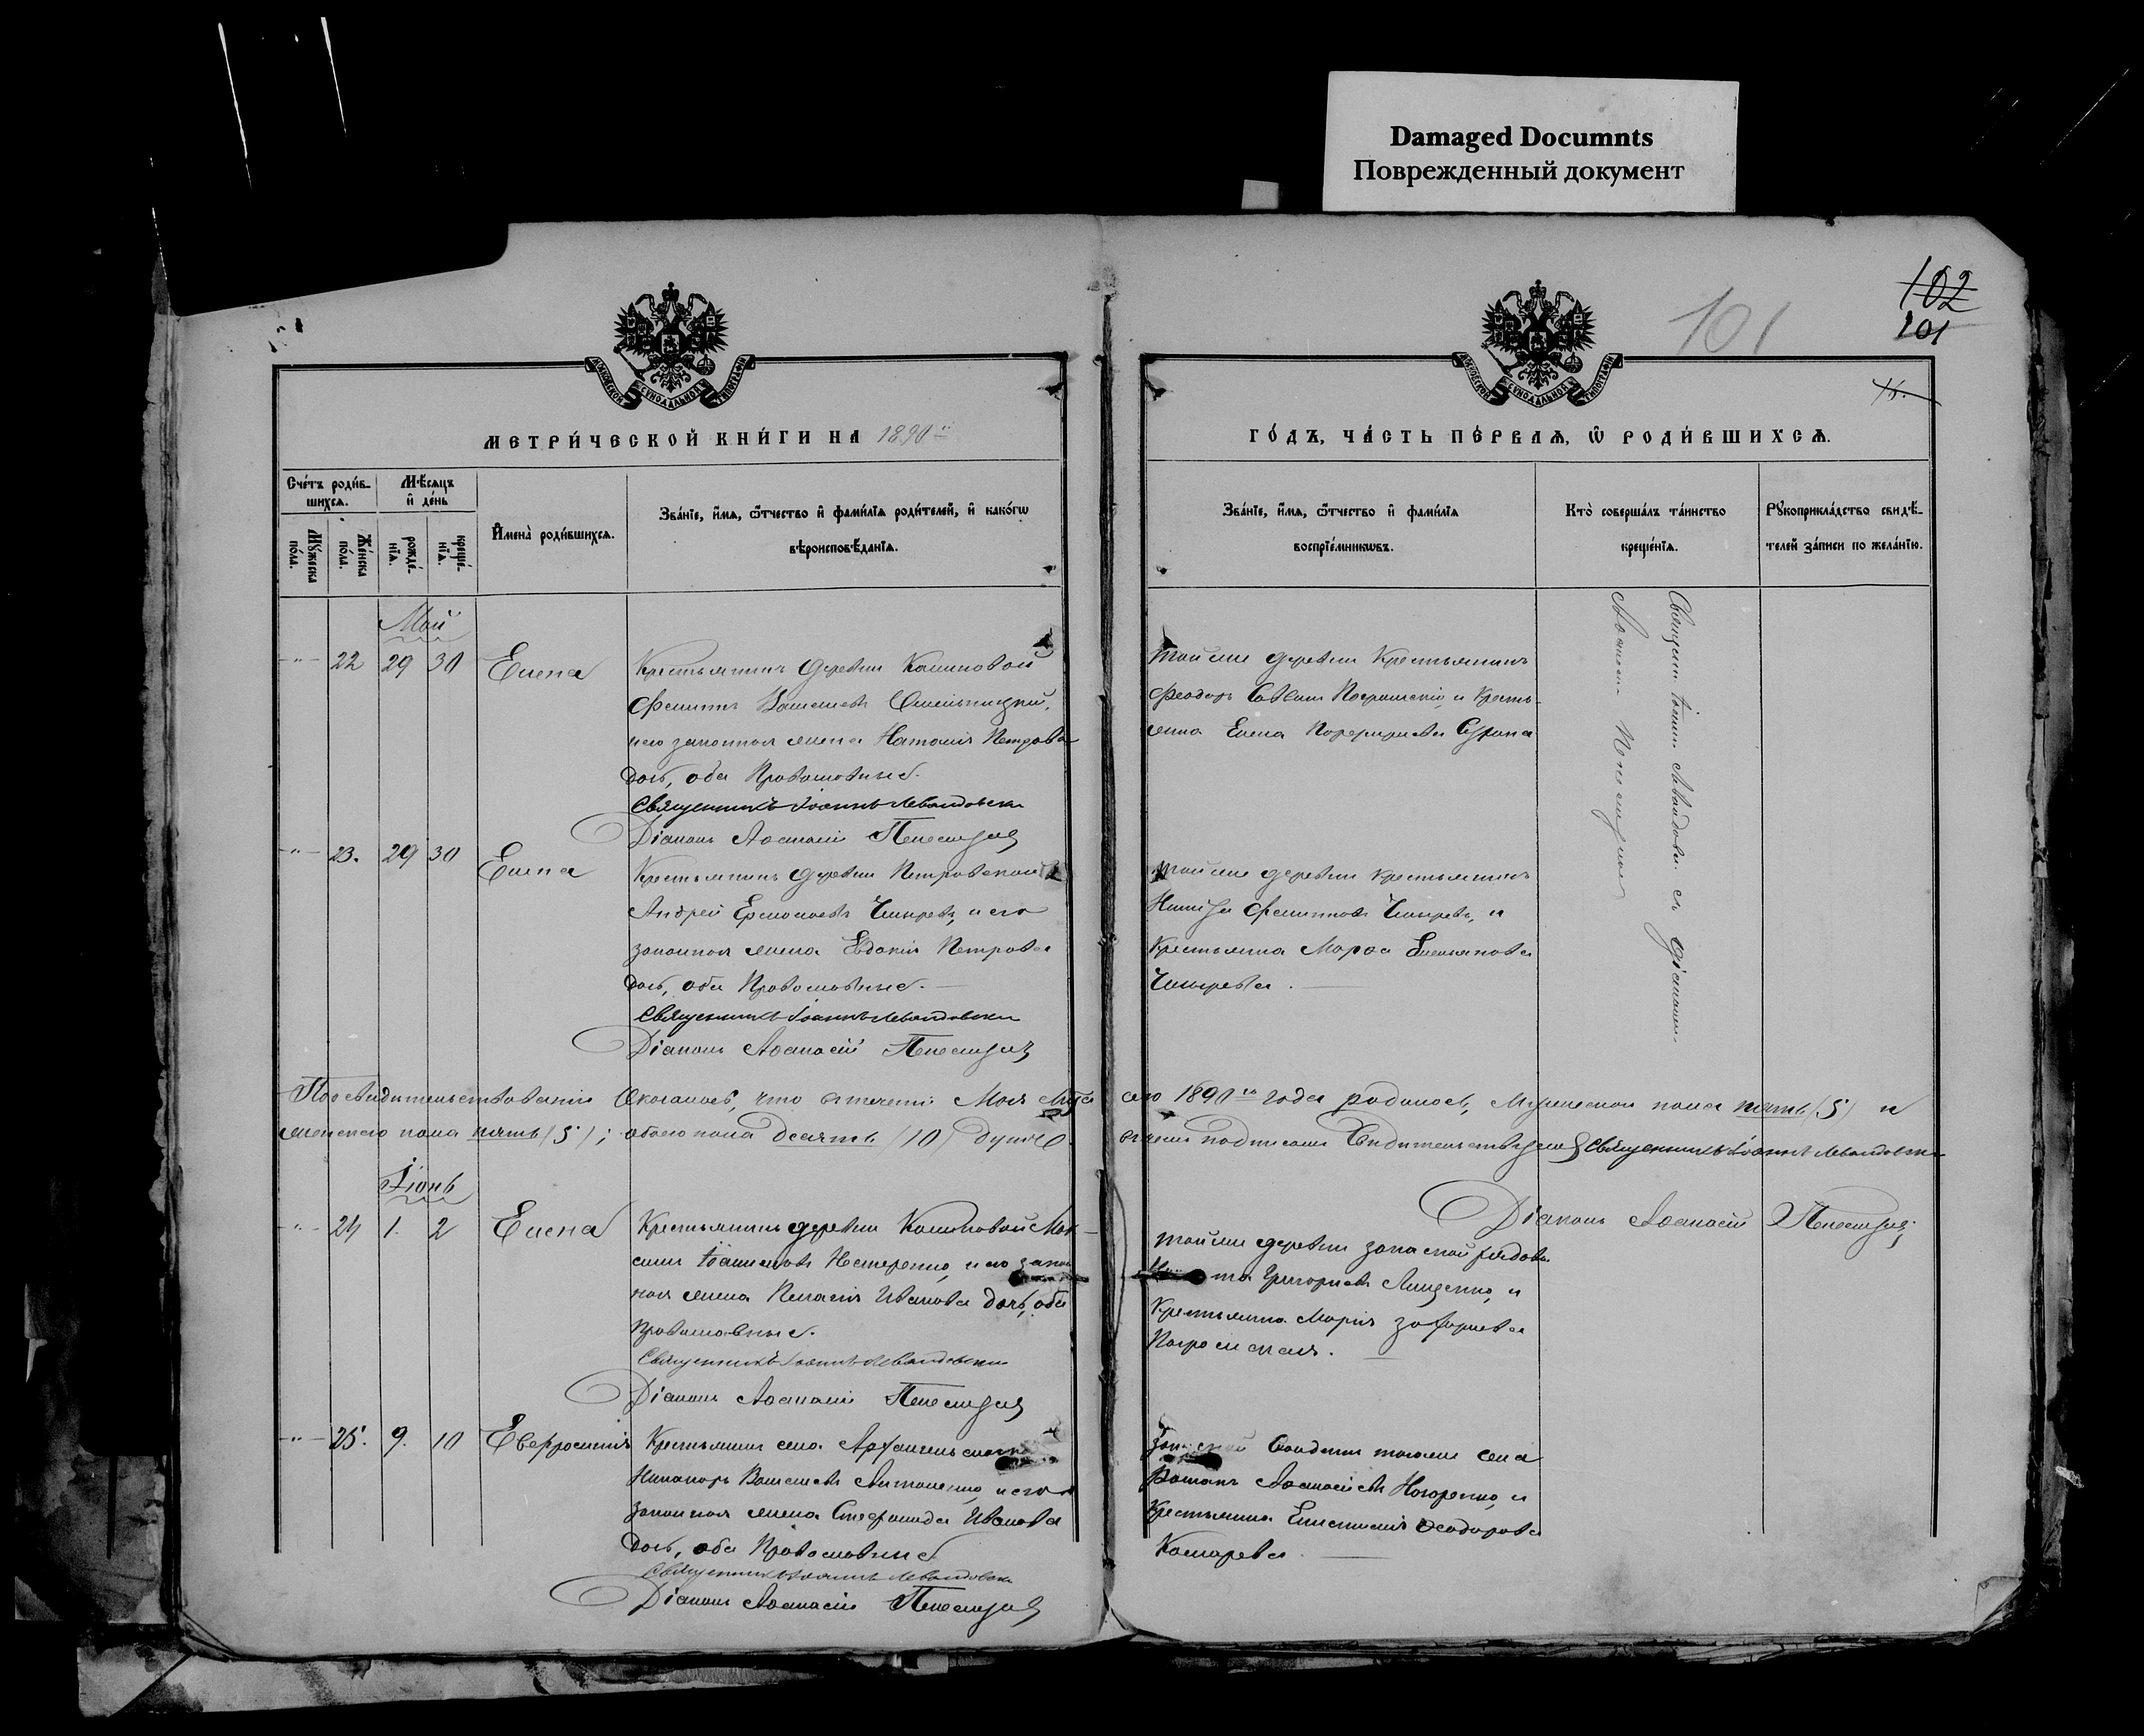 Damaged Documnts
Поврежденный документ
102
101
101
15.
МЕТРИ́ЧЕСКОЙ КНИ́ГИ НА 1890
ГО́ДЪ, ЧА́СТЬ ПЕ́РВАЯ, Ѿ РОДИ́ВШИХСЯ.
Сче́тъ роди́в-
шихся.
Мѣ́сяцъ
и҆ де́нь
Мꙋ́жеска по́ла.
Же́нска по́ла.
рожде́-
нїя.
креще́-
нїя.
И҆мена̀ роди́вшихся.
Зва́нїе, и҆́мя, ѻ҆́тчество и҆ фами́лїя роди́телей, и҆ како́гѡ
вѣроисповѣ́данїя.
Зва́нїе, и҆́мя, ѻ҆́тчество и҆ фами́лїя
воспрїе́мникѡвъ.
Кто̀ соверша́лъ та́инство
креще́нїя.
Рꙋкоприкла́дство свидѣ́-
телей за́писи по жела́нїю.
Май
22 29 30 Елена
Крестьянинъ деревни Калиновой
Филиппъ Василіевъ
и его законная жена Наталія Петрова
дочь, оба Православные.
Священникъ Іоаннъ Левандовски
Діаконъ Аѳанасій
Тойже деревни Крестьянинъ
Феодоръ и Кресть-
янка Елена
Священ. Іоаннъ Левандовск. съ діакономъ
Аѳанасіем
23. 29 30 Елена
Крестьянинъ деревни Петровской
Андрей Ермолаевъ Чмыревъ, и его
законная жена Евдокія Петрова
дочь, оба Православные.
Священникъ Іоаннъ Левандовски
Діаконъ Аѳанасій
Тойже деревни крестьянинъ
Филипповъ Чмыревъ, и
Крестьянка Марѳа Емельянова
Чмырева.
По освидѣтельствованіи Оказалось, что втеченіи Мая м-ца сего 1890го года родилось, Мужескаго пола пять (5) и
женскаго пола пять (5); обоего пола десять (10) душъ
Священникъ Іоаннъ Левандовски
Діаконъ Аѳанасій
Іюнь
24 1. 2 Елена
Крестьянинъ деревни Калиновой Мак-
симъ Іоанникіевъ Нестеренко, и его закон
ная жена Пелагія Иванова дочь, оба
Православные.
Священникъ Іоаннъ Левандовски
Діаконъ Аѳанасій
Тойже деревни запасной рядовой
Григорьевъ Лищенко, и
Крестьянка Марія Захаріева
25. 9. 10 Евфросинія
Крестьянинъ села Архангельскаго
Никаноръ Василіевъ Антоненко, и его
законная жена Стефанида Иванова
дочь, оба Православные
Священникъ Іоаннъ Левандовски
Діаконъ Аѳанасій
Солдатъ тогоже села
Романъ Аѳанасіевъ Назаренко, и
Крестьянка Ѳеодорова
Комарева.